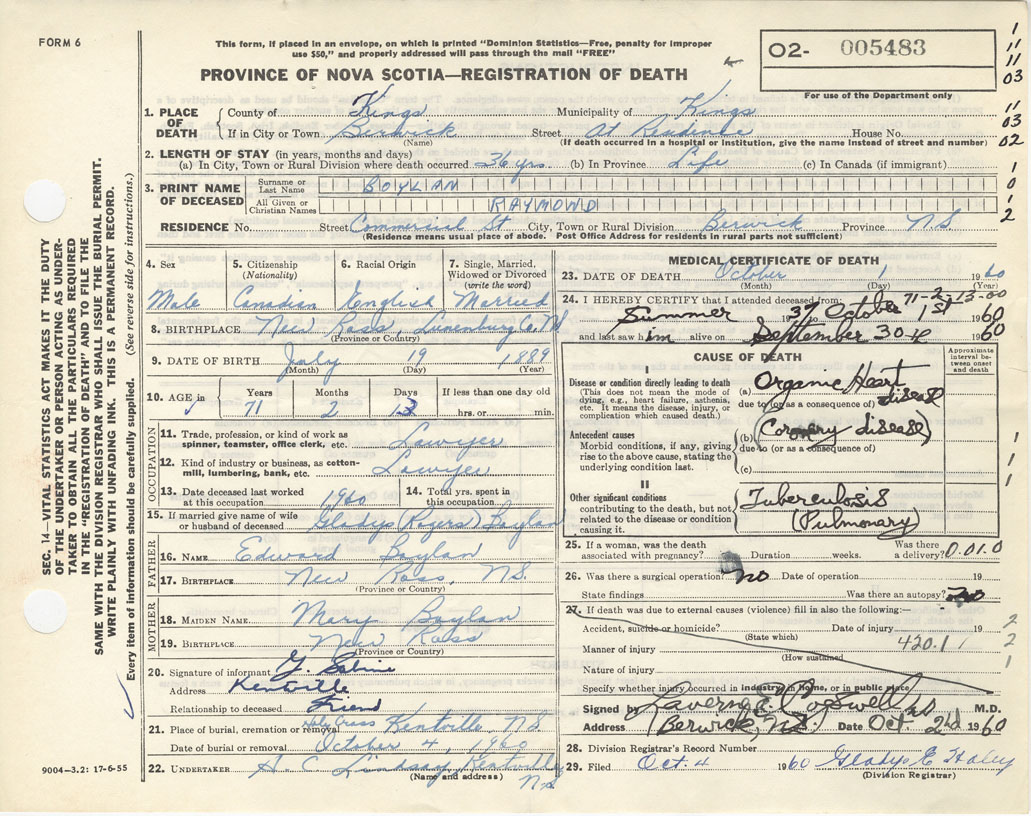 FORM 6
This form, if placed in an envelope, on which is printed "Dominion Statistics—Free, penalty for improper
use $50," and properly addressed will pass through the mail "FREE"
PROVINCE OF NOVA SCOTIA—REGISTRATION OF DEATH
02- 005483
For use of the Department only
1
11
11
03
11
03
02
1
0
1
2
1. PLACE OF DEATH { County of Kings Municipality of Kings
If in City or Town Berwick Street At Residence House No.
(Name) (If death occurred in a hospital or institution, give the name instead of street and number)
2. LENGTH OF STAY (in years, months and days)
(a) In City, Town or Rural Division where death occurred 36 yrs. (b) In Province Life (c) In Canada (if immigrant)
3. PRINT NAME OF DECEASED
Surname or Last Name BOYLAN
All Given or Christian Names RAYMOND
RESIDENCE No. Street Commercial St City, Town or Rural Division Berwick Province N.S.
(Residence means usual place of abode. Post Office Address for residents in rural parts not sufficient)
4. Sex Male
5. Citizenship (Nationality) Canadian
6. Racial Origin English
7. Single, Married, Widowed or Divorced (write the word) Married
8. BIRTHPLACE New Ross, Lunenburg Co. NS
(Province or Country)
9. DATE OF BIRTH July 19 1889
(Month) (Day) (Year)
10. AGE in Years 71 Months 2 Days 13 If less than one day old hrs. or min.
OCCUPATION
11. Trade, profession, or kind of work as spinner, teamster, office clerk, etc. Lawyer
12. Kind of industry or business, as cotton-mill, lumbering, bank, etc. Lawyer
13. Date deceased last worked at this occupation 1960
14. Total yrs. spent in this occupation
15. If married give name of wife or husband of deceased Gladys (Rogers) Boylan
FATHER
16. NAME Edward Boylan
17. BIRTHPLACE New Ross, N.S.
(Province or Country)
MOTHER
18. MAIDEN NAME Mary Boylan
19. BIRTHPLACE New Ross
(Province or Country)
20. Signature of informant
Address Kentville
Relationship to deceased Friend
21. Place of burial, cremation or removal Holy Cross Kentville N.S.
Date of burial or removal October 4, 1960
22. UNDERTAKER A. C. Lindsay Kentville NS
(Name and address)
MEDICAL CERTIFICATE OF DEATH
23. DATE OF DEATH October 1 1960
(Month) (Day) (Year)
71-2-13-00
24. I HEREBY CERTIFY that I attended deceased from:
Summer 1937 to October 1st 1960
and last saw him alive on September 30th 1960
CAUSE OF DEATH
Approximate interval between onset and death
I
Disease or condition directly leading to death
(This does not mean the mode of dying, e.g., heart failure, asthenia, etc. It means the disease, injury, or complication which caused death.)
(a) Organic Heart disease
due to (or as a consequence of)
Antecedent causes
Morbid conditions, if any, giving rise to the above cause, stating the underlying condition last.
(b) (Coronary disease)
due to (or as a consequence of)
(c)
1
1
1
II
Other significant conditions
contributing to the death, but not related to the disease or condition causing it.
Tuberculosis
(Pulmonary)
25. If a woman, was the death associated with pregnancy? Duration weeks. Was there a delivery? 0.01.0
26. Was there a surgical operation? no Date of operation 19
State findings Was there an autopsy? no
27. If death was due to external causes (violence) fill in also the following:—
Accident, suicide or homicide? Date of injury 19
(State which)
Manner of injury 420.1
(How sustained)
Nature of injury
2
2
1
Specify whether injury occurred in industry, in home, or in public place
Signed by M.D.
Address Berwick, N.S. Date Oct. 2nd 1960
28. Division Registrar's Record Number
29. Filed Oct. 4 1960 Gladys E Haley
(Division Registrar)
SEC. 14—VITAL STATISTICS ACT MAKES IT THE DUTY
OF THE UNDERTAKER OR PERSON ACTING AS UNDER-
TAKER TO OBTAIN ALL THE PARTICULARS REQUIRED
IN THE "REGISTRATION OF DEATH" AND TO FILE THE
SAME WITH THE DIVISION REGISTRAR WHO SHALL ISSUE THE BURIAL PERMIT.
WRITE PLAINLY WITH UNFADING INK. THIS IS A PERMANENT RECORD.
Every item of information should be carefully supplied. (See reverse side for instructions.)
9004-3.2: 17-6-55